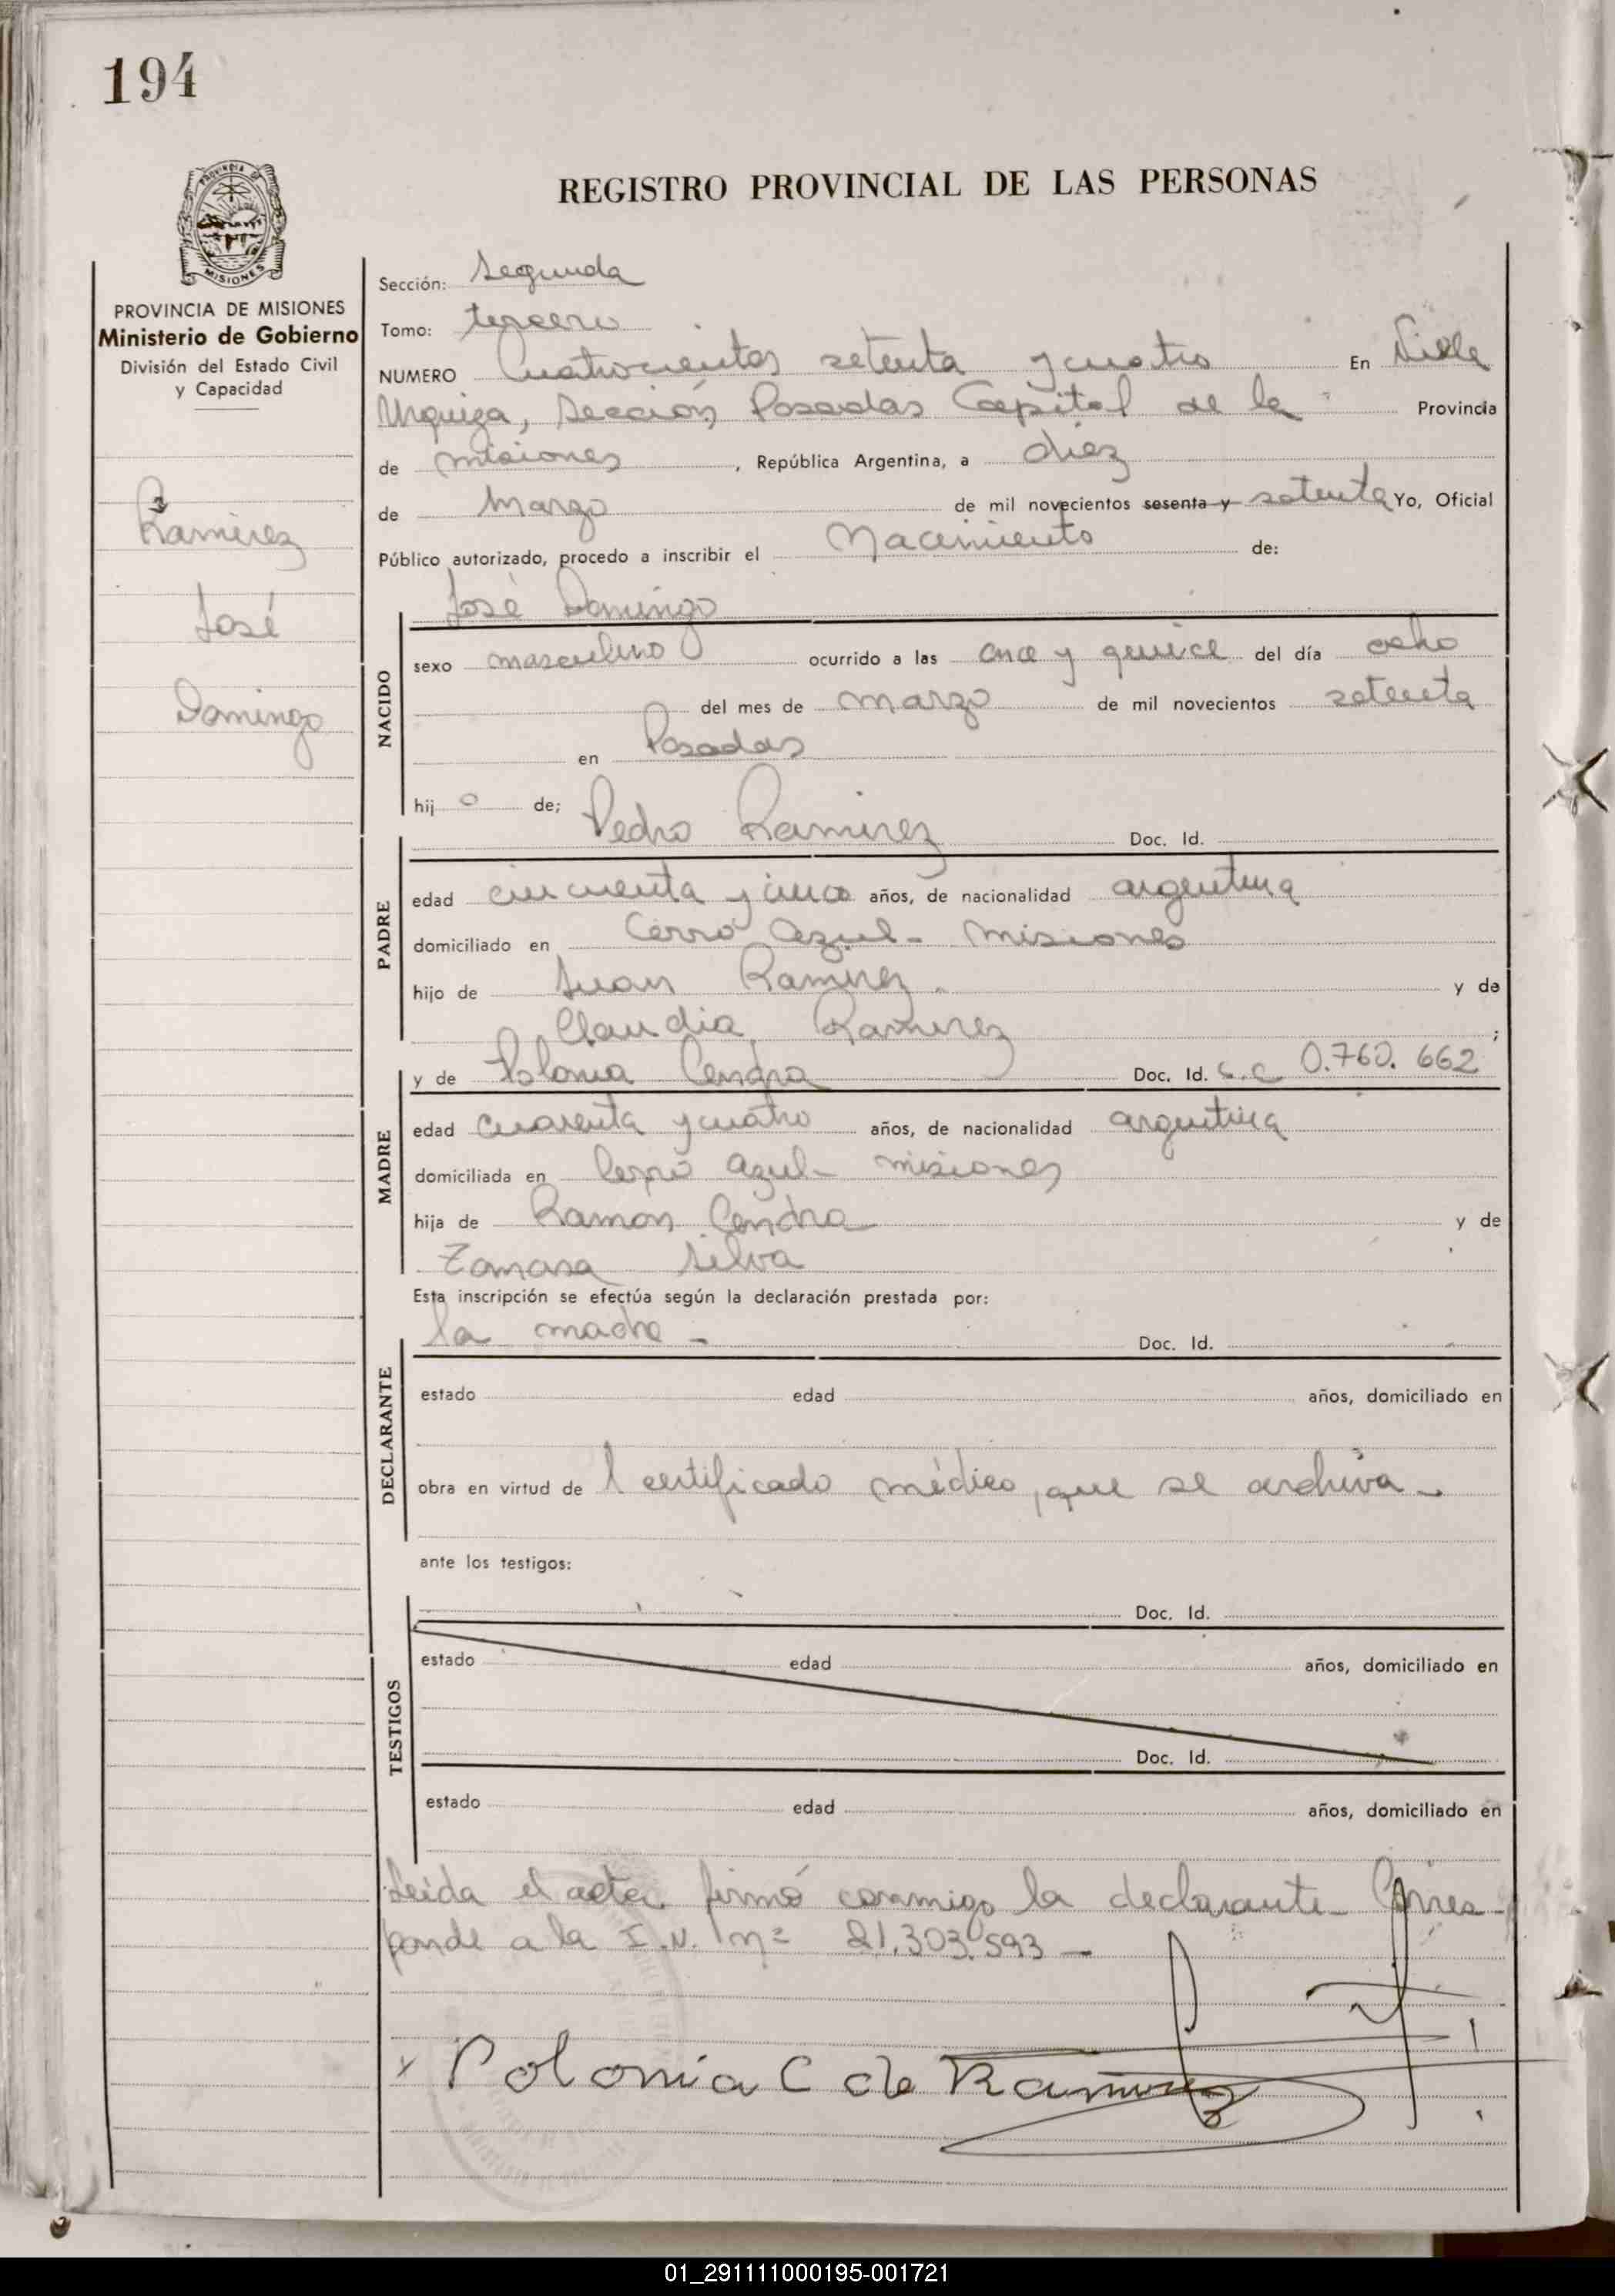 194
PROVINCIA DE MISIONES
MISIONES
REGISTRO PROVINCIAL DE LAS PERSONAS
PROVINCIA DE MISIONES
Ministerio de Gobierno
División del Estado Civil
y Capacidad
Ramirez
José
Domingo
Sección: Segunda
Tomo: tercero
NUMERO Cuatrocientos setenta y cuatro En Villa
Urquiza, Sección Posadas Capital de la Provincia
de misiones, República Argentina, a diez
de Marzo de mil novecientos sesenta y setenta Yo, Oficial
Público autorizado, procedo a inscribir el Nacimiento de:
José Domingo
NACIDO
sexo masculino ocurrido a las once y quince del día ocho
del mes de marzo de mil novecientos setenta
en Posadas
hijo de; Pedro Ramirez Doc. Id.
PADRE
edad cincuenta y cinco años, de nacionalidad argentina
domiciliado en Cerro Azul - Misiones
hijo de Juan Ramirez. y de
Claudia Ramirez ;
y de Polonia Cendra Doc. Id. L.C 0.760.662
MADRE
edad cuarenta y cuatro años, de nacionalidad argentina
domiciliada en Cerro Azul - misiones
hija de Ramon Cendra y de
Tomasa Silva
Esta inscripción se efectúa según la declaración prestada por:
la madre - Doc. Id.
DECLARANTE
estado edad años, domiciliado en
obra en virtud de l certificado médico, que se archiva -
ante los testigos:
Doc. Id.
TESTIGOS
estado edad años, domiciliado en
Doc. Id.
estado edad años, domiciliado en
Leída el acta. firmó conmigo la declarante - Corres-
ponde a la I.N. nº 21.303.593 -
x Polonia C de Ramirez
01_291111000195-001721